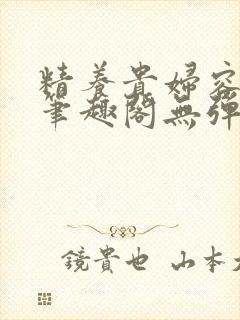 精養貴婦容
筆趣閣無彈
鏡貴也 山本大